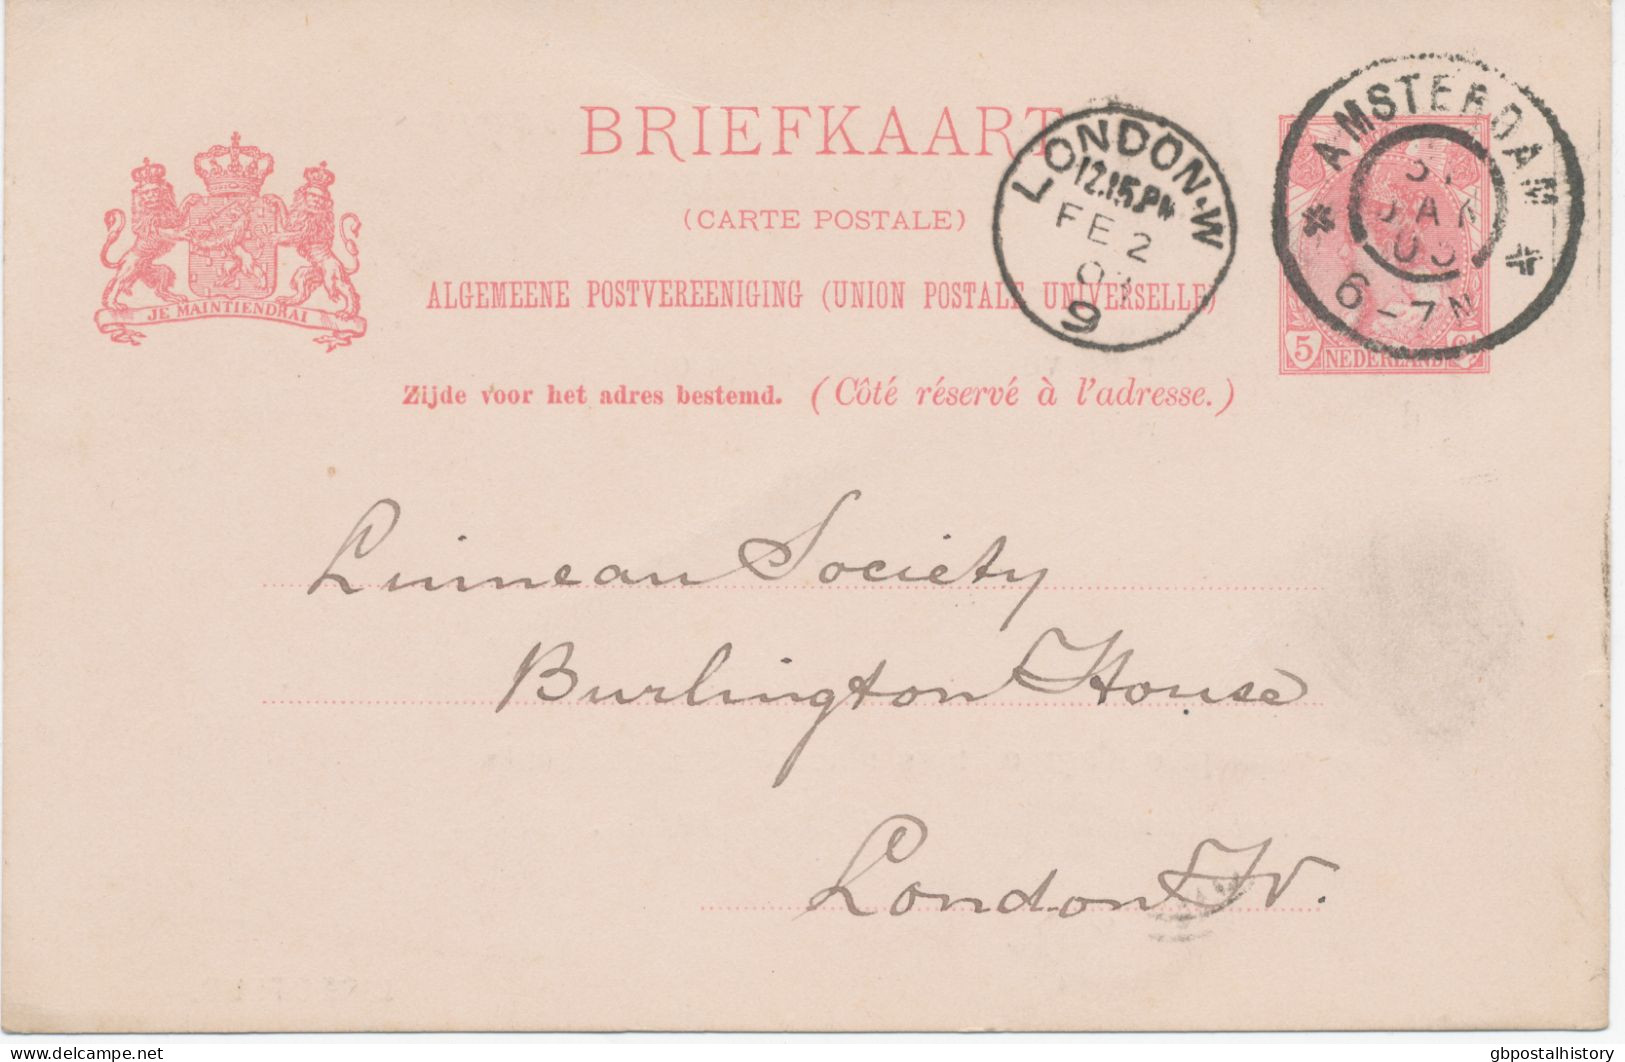 BRIEFKAART
(CARTE POSTALE)
ALGEMEENE POSTVEREENIGING (UNION POSTALE UNIVERSELLE)
Zijde voor het adres bestemd. (Côté réservé à l'adresse.)
JE MAINTIENDRAI
LONDON·W
12.15.PM
FE 2
9
AMSTERDAM
JAN
6-7N
5
NEDERLAND
Linnean Society
Burlington House
London W.
delcampe.net
gbpostalhistory